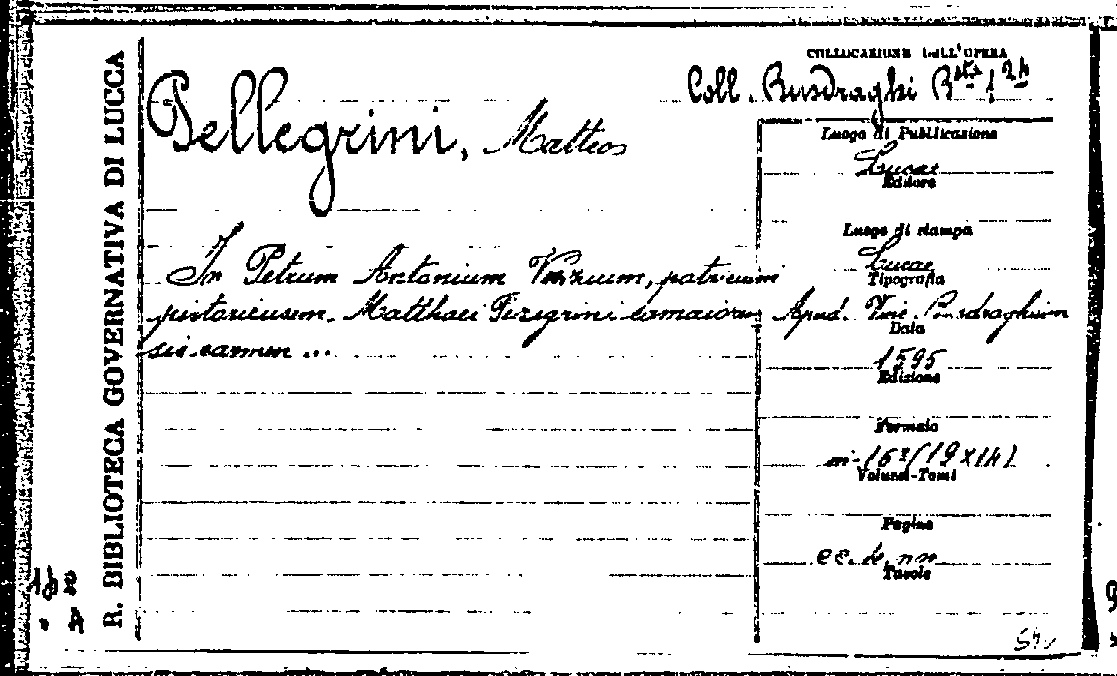 R. BIBLIOTECA GOVERNATIVA DI LUCCA
Pellegrini, Matteo
In Petrum Antonium patricium
pistoriensem. Matthaei Peregrini camaioren
sis carmen ...
COLLOCAZIONE DELL'OPERA
Coll. Busdraghi Bsta 1 24
Luogo di Pubblicazione
Lucae
Editore
Luogo di stampa
Lucae
Tipografia
Apud. Vinc. Busdraghium
Data
1595
Edizione
Formato
in-16° (19x14)
Volumi-Tomi
Pagine
cc. 4. nn
Tavole